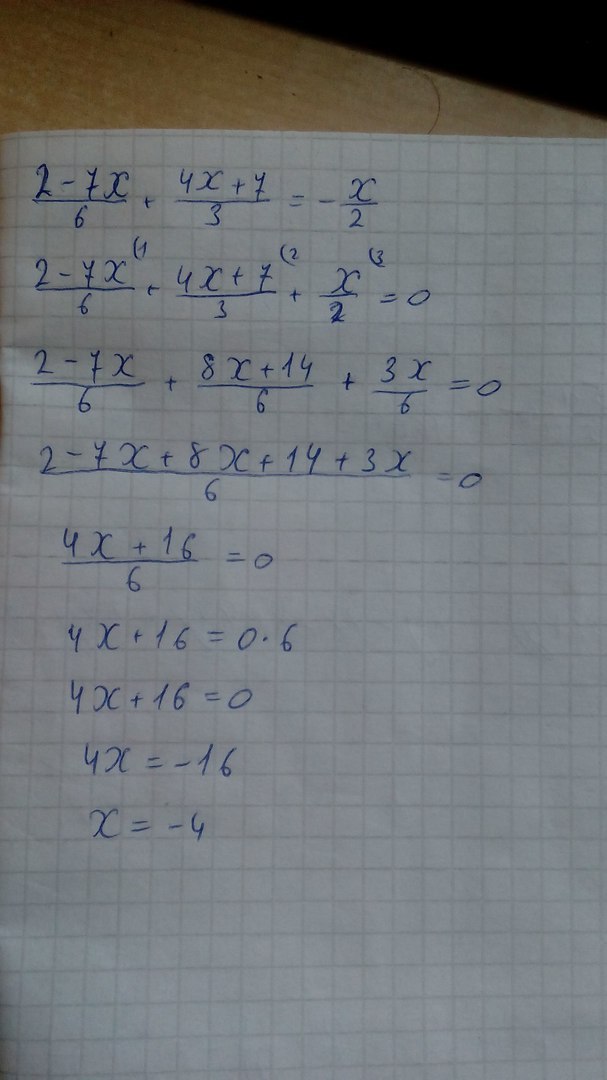 (2-7x)/6 + (4x+7)/3 = -x/2
(2-7x)/6 (1 + (4x+7)/3 (2 + x/2 (3 = 0
(2-7x)/6 + (8x+14)/6 + 3x/6 = 0
(2-7x+8x+14+3x)/6 = 0
(4x+16)/6 = 0
4x+16=0·6
4x+16=0
4x=-16
x=-4